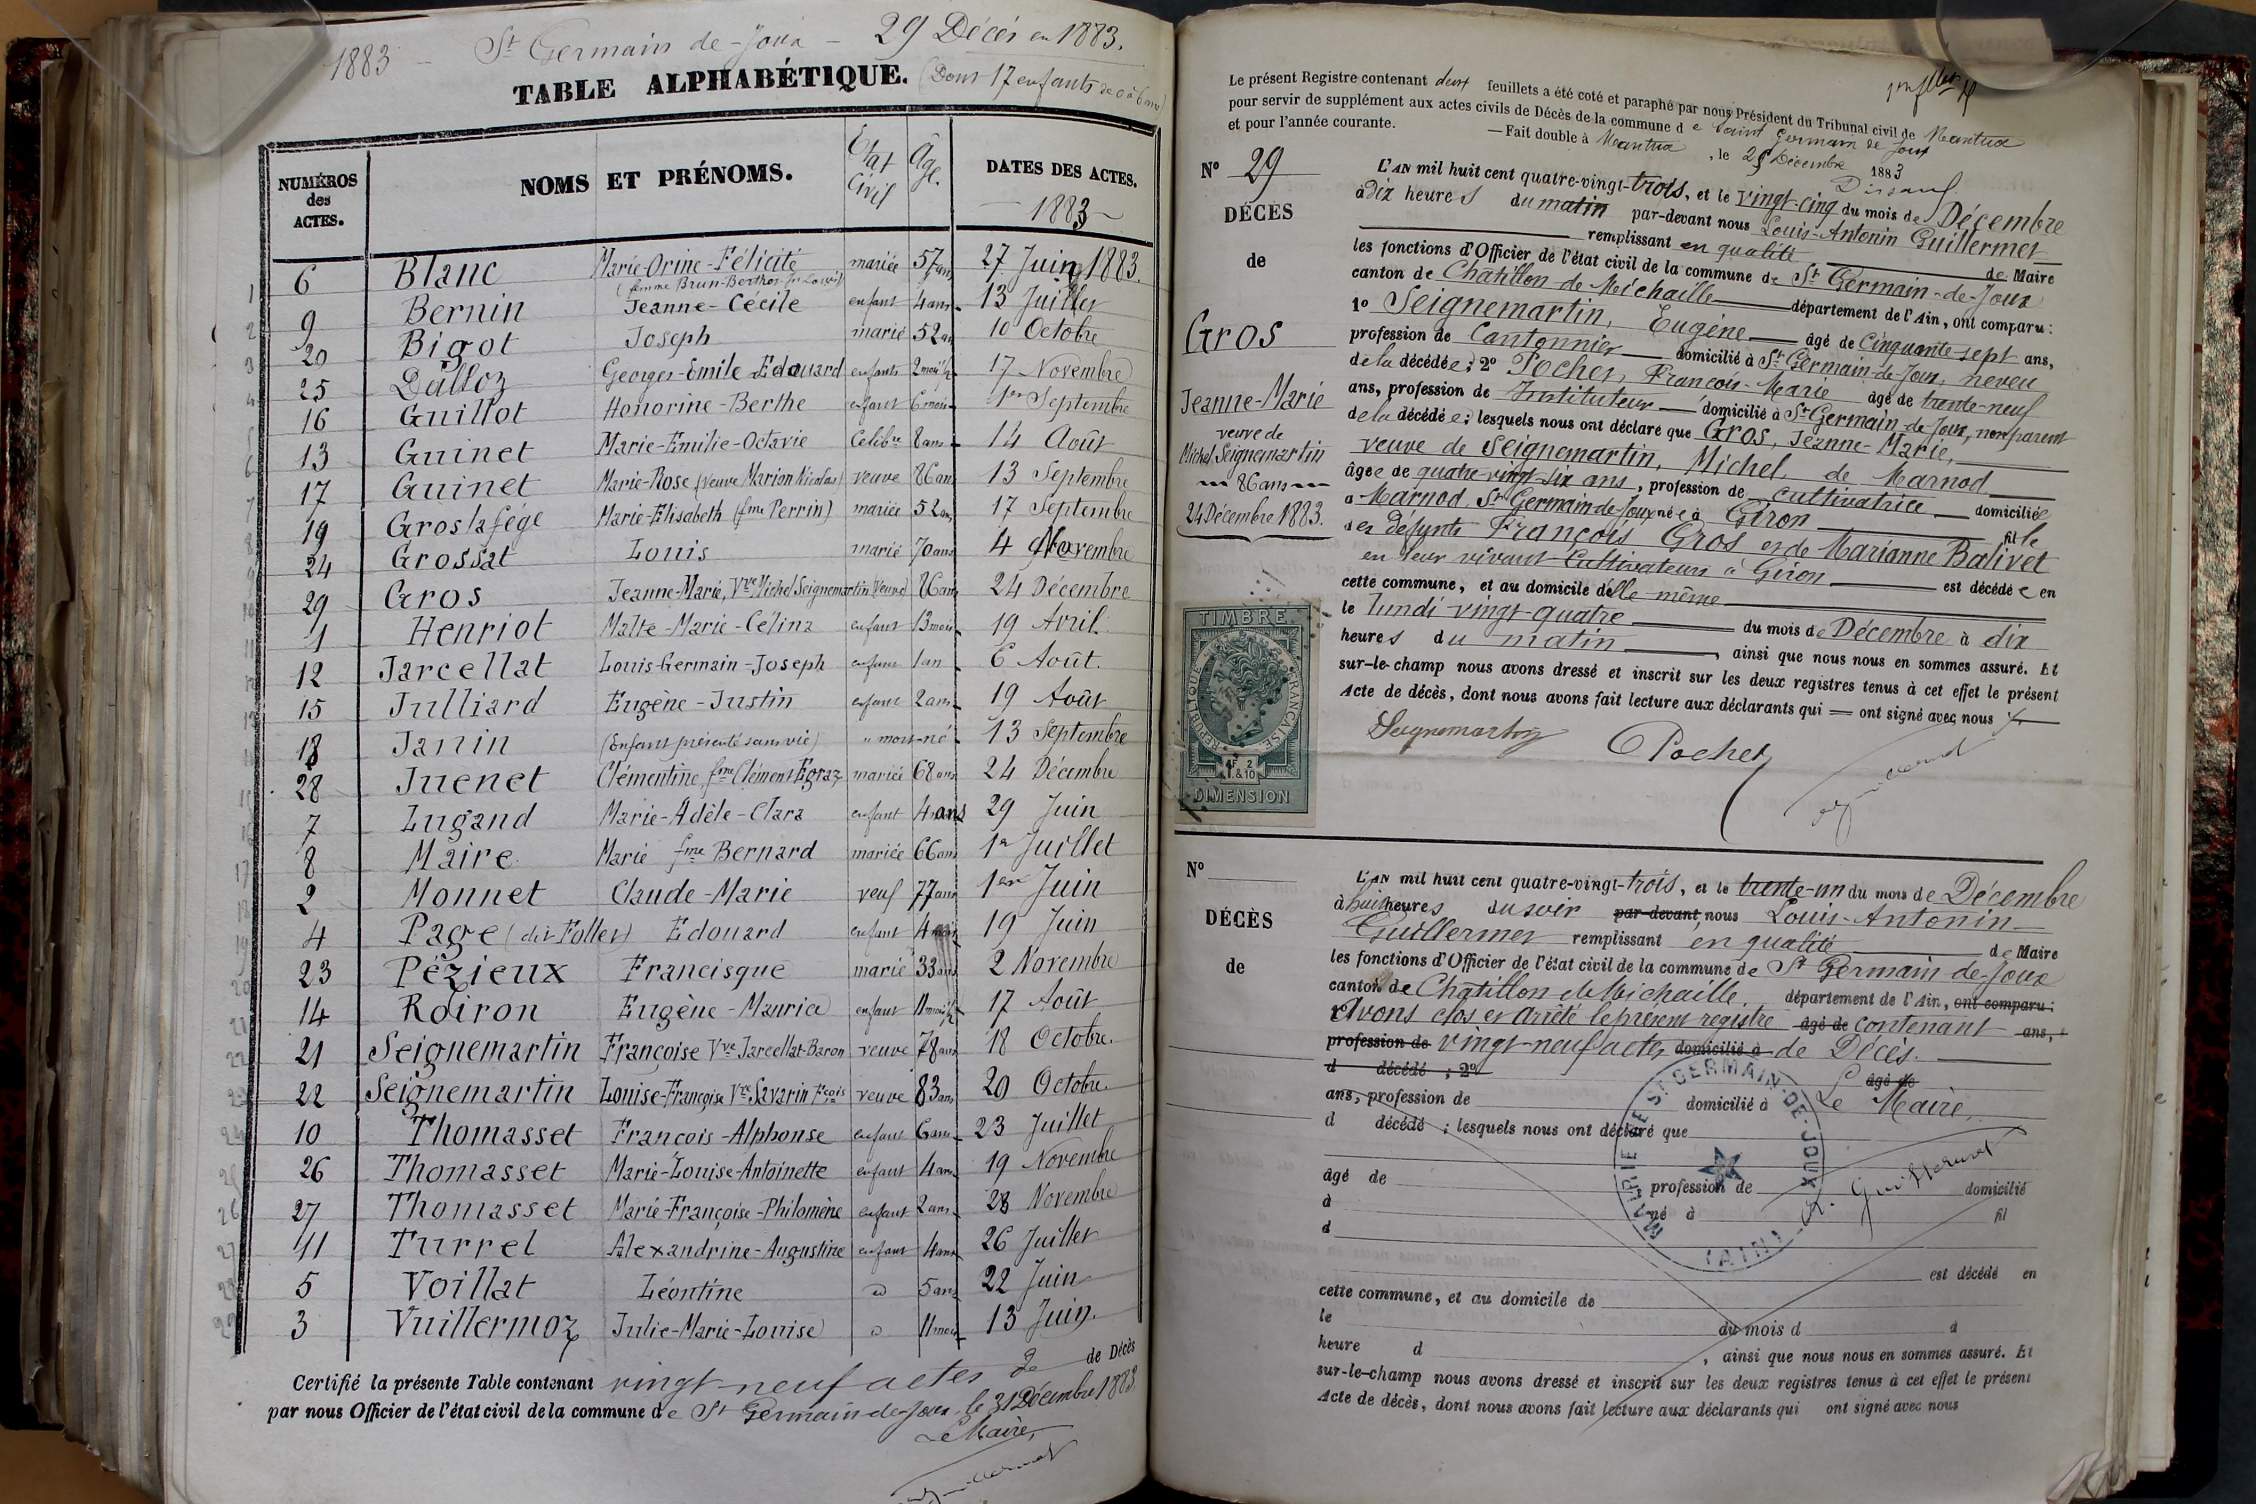 1883 – St Germain de-Joux – 29 Décès en 1883.
TABLE ALPHABÉTIQUE. (Dont 17 enfants de 0 à 6 ans)
NUMÉROS des ACTES. NOMS ET PRÉNOMS. État Civil Âge. DATES DES ACTES.
– 1883 –
6 Blanc Marie-Orine-Félicité mariée 57 ans 27 Juin 1883.
(femme Brun-Berthet
1 9 Bernin Jeanne-Cécile enfant 4 ans 13 Juillet
2 20 Bigot Joseph marié 52 ans 10 Octobre
3 25 Dalloz Georges-Emile Edouard enfants 2 mois ½ 17 Novembre
4 16 Guillot Honorine-Berthe enfant 6 mois 1er Septembre
5 13 Guinet Marie-Emilie-Octavie Celibre 8 ans 14 Août
6 17 Guinet Marie-Rose (veuve Marion Nicolas) veuve 86 ans 13 Septembre
7 19 Groslafége Marie-Elisabeth (fme Perrin) mariée 52 ans 17 Septembre
8 24 Grossat Louis marié 70 ans 4 Novembre
9 29 Gros Jeanne-Marie, Vve Michel Seignemartin veuve 86 ans 24 Décembre
10 1 Henriot Malte-Marie-Célina enfant 13 mois 19 Avril.
11 12 Jarcellat Louis-Germain-Joseph enfant 1 an 6 Août.
12 15 Julliard Eugène-Justin enfant 2 ans 19 Août
13 18 Janin (Enfant présenté sans vie) " mort-né 13 Septembre
14 28 Juenet Clémentine fme Clément Egraz mariée 68 ans 24 Décembre
15 7 Lugand Marie-Adèle-Clara enfant 4 ans 29 Juin
16 8 Maire Marie fme Bernard mariée 66 ans 1er Juillet
17 2 Monnet Claude-Marie veuf 77 ans 1er Juin
18 4 Page (dit Follet) Edouard enfant 4 mois 19 Juin
19 23 Pézieux Francisque marié 33 ans 2 Novembre
20 14 Roiron Eugène-Maurice enfant 11 mois ½ 17 Août
21 21 Seignemartin Françoise Vve Jarcellat-Baron veuve 78 ans 18 Octobre.
22 22 Seignemartin Louise-Françoise Vve Savarin Fçois veuve 83 ans 20 Octobre.
23 10 Thomasset François-Alphonse enfant 6 ans 23 Juillet
24 26 Thomasset Marie-Louise-Antoinette enfant 4 ans 19 Novembre
25 27 Thomasset Marie-Françoise-Philomène enfant 2 ans 28 Novembre
26 11 Turrel Alexandrine-Augustine enfant 4 ans 26 Juillet
27 5 Voillat Léontine d 5 ans 22 Juin
28 3 Vuillermoz Julie-Marie-Louise d 11 mois 13 Juin.
29
Certifié la présente Table contenant vingt neuf actes de de Décès
par nous Officier de l'état civil de la commune de St Germain-de-Joux, le 31 Décembre 1883.
Le Maire,
Le présent Registre contenant deux feuillets a été coté et paraphé par nous Président du Tribunal civil de Nantua
pour servir de supplément aux actes civils de Décès de la commune de Saint Germain de Joux
et pour l'année courante. — Fait double à Nantua, le 25 Décembre 1883
No 29
DÉCÈS
de
Gros
Jeanne-Marie
veuve de
Michel Seignemartin
86 ans
24 Décembre 1883.
L'AN mil huit cent quatre-vingt-trois, et le vingt-cinq du mois de Décembre
à dix heures du matin par-devant nous Louis-Antonin Guillermet
remplissant en qualité de Maire
les fonctions d'Officier de l'état civil de la commune de St Germain-de-Joux
canton de Châtillon-de-Michaille département de l'Ain, ont comparu:
1o Seignemartin, Eugène âgé de Cinquante-sept ans,
profession de Cantonnier domicilié à St Germain-de-Joux, neveu
de la décédée; 2o Pochet, François-Marie âgé de trente-neuf
ans, profession de Instituteur domicilié à St Germain-de-Joux, non parent
de la décédée; lesquels nous ont déclaré que Gros, Jeanne-Marie,
veuve de Seignemartin, Michel, de Marnod
âgée de quatre-vingt-six ans, profession de cultivatrice domiciliée
à Marnod, St Germain-de-Joux née à Giron fille
des défunts François Gros et de Marianne Balivet
en leur vivant Cultivateurs à Giron est décédée en
cette commune, et au domicile d'elle-même
le lundi vingt-quatre du mois de Décembre à dix
heures du matin, ainsi que nous nous en sommes assuré. Et
sur-le-champ nous avons dressé et inscrit sur les deux registres tenus à cet effet le présent
Acte de décès, dont nous avons fait lecture aux déclarants qui ont signé avec nous
Seignemartin Pochet
TIMBRE
RÉPUBLIQUE FRANÇAISE
DIMENSION
No
DÉCÈS
de
L'AN mil huit cent quatre-vingt-trois, et le trente-un du mois de Décembre
à huit heures du soir par-devant nous Louis-Antonin
Guillermet remplissant en qualité de Maire
les fonctions d'Officier de l'état civil de la commune de St Germain-de-Joux
canton de Châtillon de Michaille, département de l'Ain, ont comparu:
Avons clos et arrêté le présent registre âgé de contenant ans,
profession de vingt-neuf actes domicilié à de Décès.
d décédé; 2o âgé de
ans, profession de domicilié à Le Maire,
d décédé; lesquels nous ont déclaré que
âgé de profession de domicilié
à né à fil
d
est décédé en
cette commune, et au domicile de
le du mois d à
heure d , ainsi que nous nous en sommes assuré. Et
sur-le-champ nous avons dressé et inscrit sur les deux registres tenus à cet effet le présent
Acte de décès, dont nous avons fait lecture aux déclarants qui ont signé avec nous
MAIRIE DE ST GERMAIN-DE-JOUX (AIN)
Guillermet